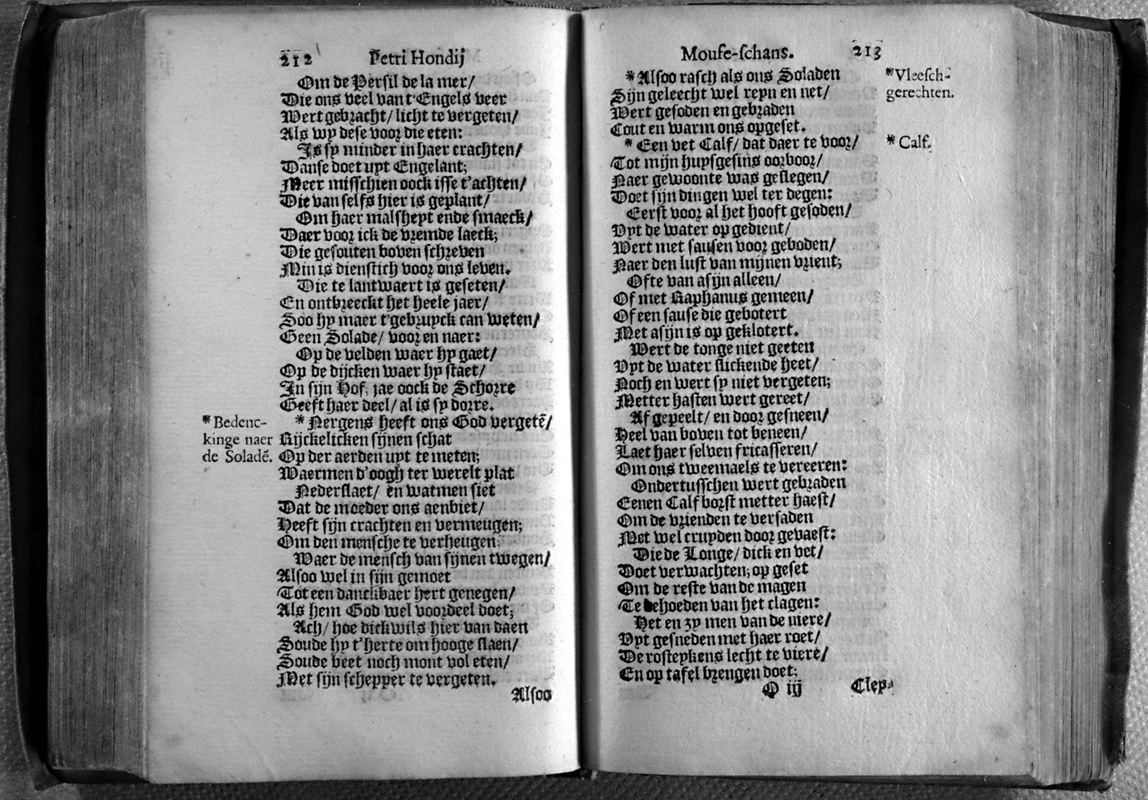 212 Petri Hondij
Om de Persil de la mer/
Die ons veel van t'Engels veer
Wert gebracht/ licht te vergeten/
Als wy dese voor die eten:
Is sy minder in haer crachten/
Danse doet uyt Engelant;
Meer misschien oock isse t'achten/
Die van selfs hier is geplant/
Om haer malsheyt ende smaeck/
Daer voor ick de vremde laeck;
Die gesouten boven schreven
Min is dienstich voor ons leven.
Die te lantwaert is geseten/
En ontbreeckt het heele jaer/
Soo hy maer t'gebruyck can weten/
Geen Solade/ voor en naer:
Op de velden waer hy gaet/
Op de dijcken waer hy staet/
In sijn Hof, jae oock de Schorre
Geeft haer deel/ al is sy dorre.
* Bedenc-
kinge naer
de Soladē.
* Nergens heeft ons God vergetē/
Rijckelicken sijnen schat
Op der aerden uyt te meten;
Waermen d'oogh ter werelt plat
Nederslaet/ en watmen siet
Dat de moeder ons aenbiet/
Heeft sijn crachten en vermeugen;
Om den mensche te verheugen.
Waer de mensch van sijnen twegen/
Alsoo wel in sijn gemoet
Tot een danckbaer hert genegen/
Als hem God wel voordeel doet;
Ach/ hoe dickwils hier van daen
Soude hy t'herte om hooge slaen/
Soude beet noch mont vol eten/
Met sijn schepper te vergeten.
Alsoo
Mouse-schans. 213
* Alsoo rasch als ons Soladen
Sijn geleecht wel reyn en net/
Wert gesoden en gebraden
Cout en warm ons opgeset.
* Vleesch-
gerechten.
* Een vet Calf/ dat daer te voor/
Tot mijn huysgesins oorboor/
Naer gewoonte was geslegen/
Doet sijn dingen wel ter degen:
* Calf.
Eerst voor al het hooft gesoden/
Uyt de water op gedient/
Wert met sausen voor geboden/
Naer den lust van mijnen vrient;
Ofte van asijn alleen/
Of met Raphanus gemeen/
Of een sause die gebotert
Met asijn is op geklotert.
Wert de tonge niet geeten
Uyt de water stickende heet/
Noch en wert sy niet vergeten;
Metter hasten wert gereet/
Af gepeelt/ en door gesneen/
Heel van boven tot beneen/
Laet haer selven fricasseren/
Om ons tweemaels te vereeren:
Ondertusschen wert gebraden
Eenen Calfborst metter haest/
Om de vrienden te versaden
Met wel cruyden door gevaest:
Die de Longe/ dick en vet/
Doet verwachten; op geset
Om de reste van de magen
Te behoeden van het clagen:
Het en zy men van de niere/
Uyt gesneden met haer roet/
De rosteykens lecht te viere/
En op tafel brengen doet;
Q ij Cley-